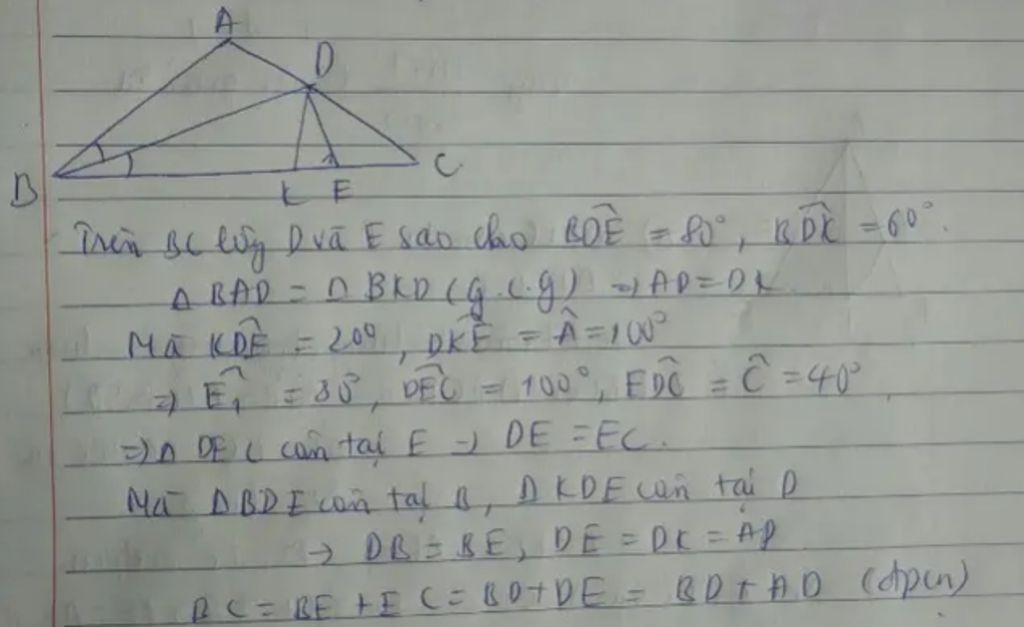 A
D
B
K E
C
Trên BC lấy D và E sao cho BDÊ = 80°, BDK̂ = 60°.
Δ BAD = Δ BKD (g.c.g) ⇒ AD = DK
Mà KDÊ = 20°, DKÊ = Â = 100°
⇒ Ê₁ = 80°, DEĈ = 100°, EDĈ = Ĉ = 40°
⇒ Δ DEC cân tại E → DE = EC.
Mà ΔBDE cân tại B, ΔKDE cân tại D
→ DB = BE, DE = DK = AD
BC = BE + EC = BD + DE = BD + AD (đpcm)